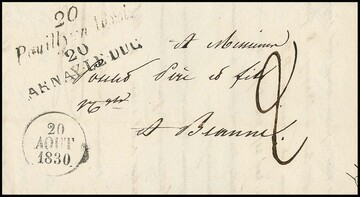 20
Pouilly en
20
ARNAY-LE-DUC
A Monsieur
Père et fils
A Beaune.
2
20
AOUT
1830